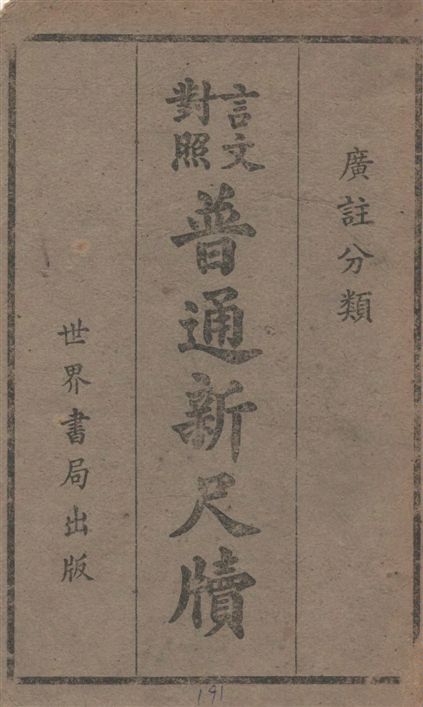 廣註分類
言文對照
普通新尺牘
世界書局出版
191